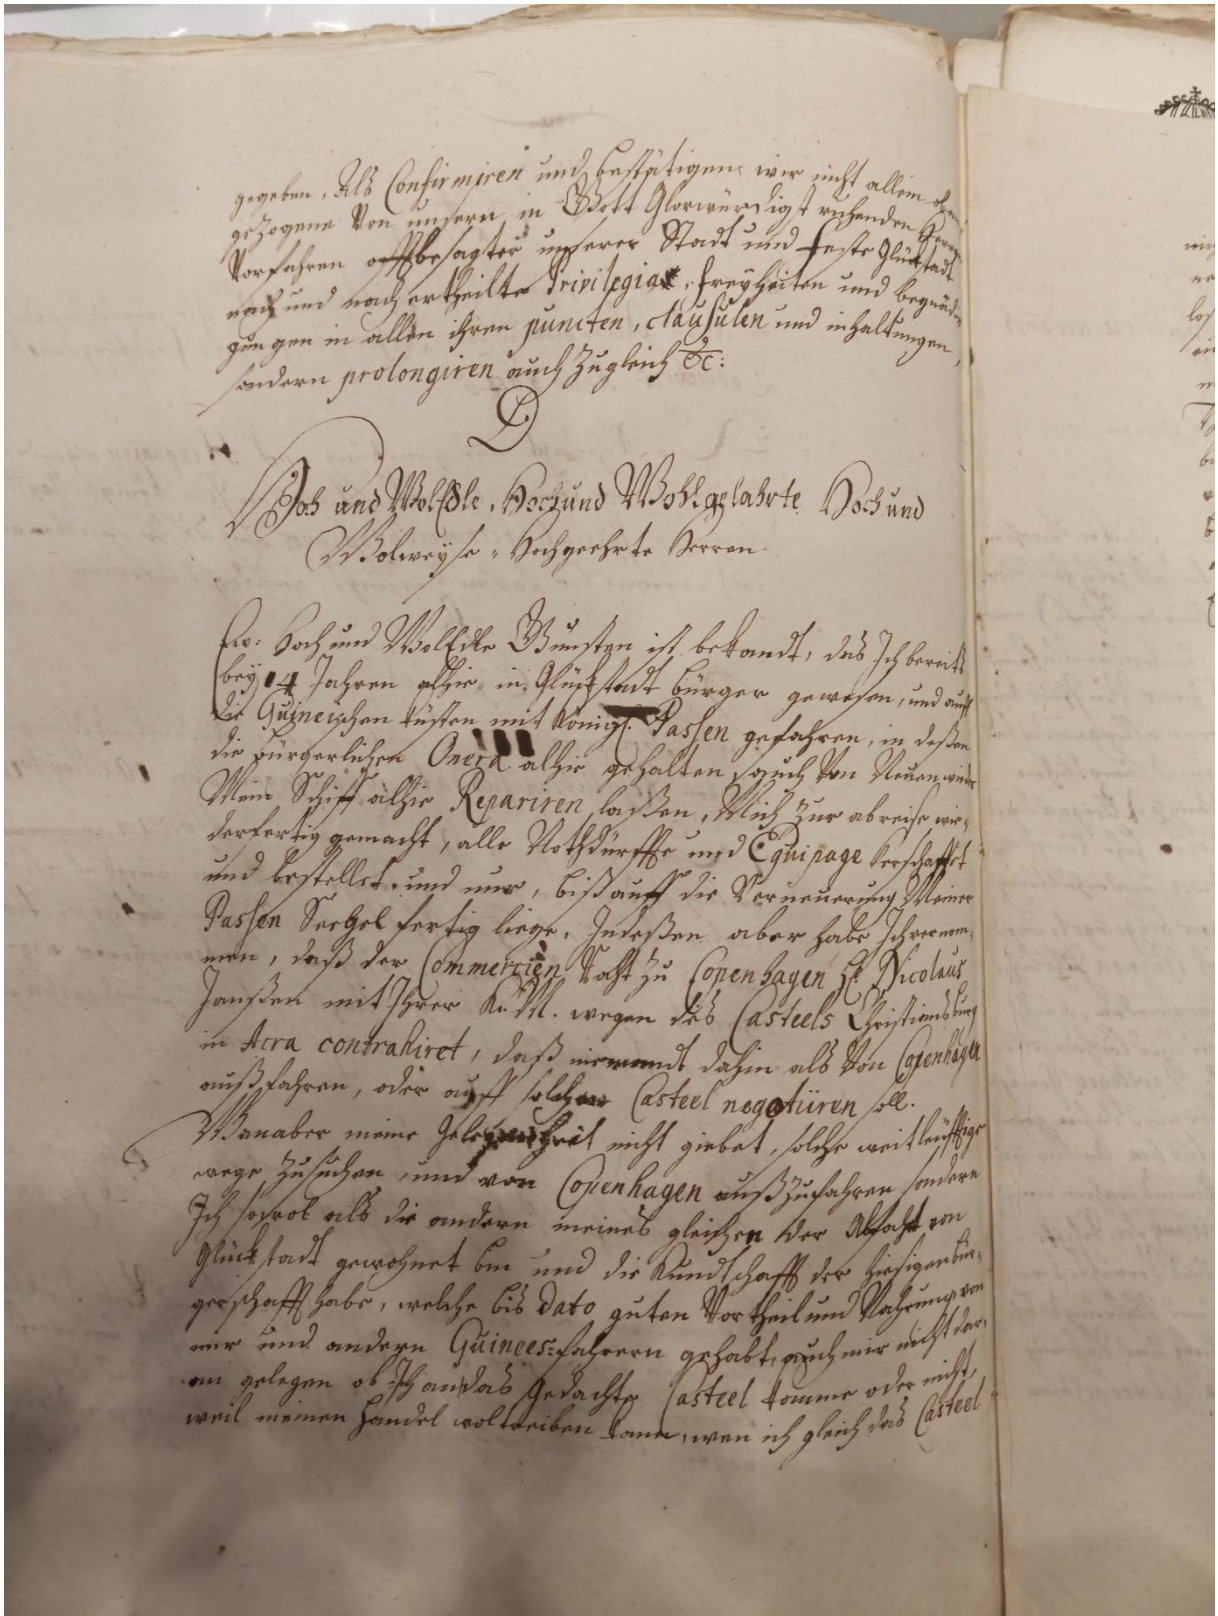 gegeben, Als Confirmiren und bestätigen wir nicht allein
gezogene Von unsern in Gott Glorwürdigst ruhenden Herrn
Vorfahren offtbesagter unserer Stadt und Feste Glückstadt
nach und nach ertheilte Privilegia, freyheiten und begnädi
gungen in allen ihren puncten, clausulen und inhaltungen,
sondern prolongiren auch zugleich &c:
D
Hoch und WolEdle, Hoch und Wohlgelahrte Hoch und
Wolweyse, Hochgeehrte Herren
Ew: Hoch und WolEdle Gunsten ist bekandt, das Ich bereits
bey 14 Jahren alhie in Glückstadt bürger gewesen, und auff
die Guineischen Küsten mit Königl. Passen gefahren, in deßen
die bürgerlichen Onera alhie gehalten, auch Von Neuen wieder
Mein Schiff alhie Repariren laßen, Mich zur abreise wie,
derfertig gemacht, alle Nothdürffte und Equipage verschaffet
und bestellet, und nur, biß auff die Verneuerung Meiner
Passen Seegel fertig liege, Indeßen aber habe Ich vernom,
men, daß der Commercien Raht zu Copenhagen H. Nicolaus
Janßen mit Ihrer K. M. wegen des Casteels Christiansburg
in Acra contrahiret, daß niemandt dahin als Von Copenhagen
außfahren, oder auff solchen Casteel negotiiren soll.
Wan aber meine Gelegenheit nicht giebet, solche weitleufftige
wege zusuchen, und von Copenhagen außzufahren sondern
Ich sowol als die andern meines gleichen der Abfahrt von
Glückstadt gewohnet bin und die Kundtschafft der hiesigen bür,
gerschafft habe, welche bis Dato guten Vortheil und Nahrung von
mir und andern Guinees=fahrern gehabt, auch mir nicht dar,
an gelegen ob Ich an das gedachte Casteel komme oder nicht,
weil meinen Handel wol treiben kann, wen ich gleich das Casteel